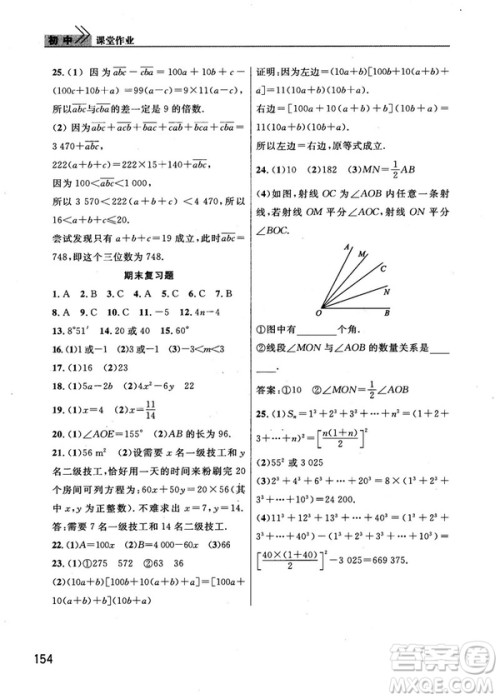 初中 课堂作业
25. (1) 因为abc－cba＝100a＋10b＋c－
(100c＋10b＋a)＝99(a－c)＝9×11(a－c),
所以abc与cba的差一定是 9 的倍数.
(2) 因为222(a＋b＋c)＝
3 470＋abc,
222(a＋b＋c)＝222×15＋140＋abc,
因为 100＜abc＜1 000,
所以 3 570＜222(a＋b＋c)＜4 470, 所以
16＜a＋b＋c≤20.
尝试发现只有 a＋b＋c＝19, 此时abc＝
748, 所以这个三位数为 748.
期末复习题
1. A 2. B
8. A 9. C 10. B 11. D 12. 4n－4
13. 8°51′ 14. 20 或 40
16. (1)1或－1 (2)1或－1
17. (1)52 (2)23
18. (1)5a－2b (2)4x²－6y
19. (1)x＝4 (2)x＝11/14
20. (1)∠AOE＝155° (2)AB 的长为 96.
21. (1)56 m² (2)设需要 x 名一级技工和 y
名二级技工, 恰好用一天的时间来粉刷完 20
个房间可列方程: 60x＋50y＝20×56(其中
x, y 为正整数). 不难求出 x＝7, y＝14.
答: 需要 7 名一级技工和 14 名二级技工.
22. (1)100x
23. (1)①275 572 ②63 36
(2)(10a＋b)[100b＋10(a＋b)＋a]＝
[100a＋10(a＋b)＋b](10b＋a)
证明: 因为左边＝(10a＋b)[100b＋10(a＋
b)＋a]＝11(10a＋b)(10b＋a).
右边＝[100a＋10(a＋b)＋b](10b＋a)＝
11(10a＋b)(10b＋a),
所以左边＝右边, 原等式成立.
24. (1)10 (2)182 (3)MN＝1/2AB
(4)如图, 射线 OC 为∠AOB 内任意一条射
线, 若射线 OM 平分∠AOC, 射线 ON 平分
∠BOC.
A
M
C
N
O B
①图中有______个角.
②线段∠MON 与∠AOB 的数量关系是____
____.
答案: ①10 ②∠MON＝1/2∠AOB
25. (1)Sₙ＝1³＋2³＋3³＋…＋n³＝
[n(1＋n)/2]²
(2)55² 或 3 025
(3)2³＋4³＋…＋20³＝2³(1³＋2³＋3³＋…＋
10³)＝24 200.
(4)11³＋12³＋13³＋…＋39³＋40³＝(1³＋
2³＋3³＋…＋40³)－(1³＋2³＋3³＋…＋10³)＝
[40×(1＋40)/2]²－3 025＝669 375.
154
答案圈
MXQE.COM